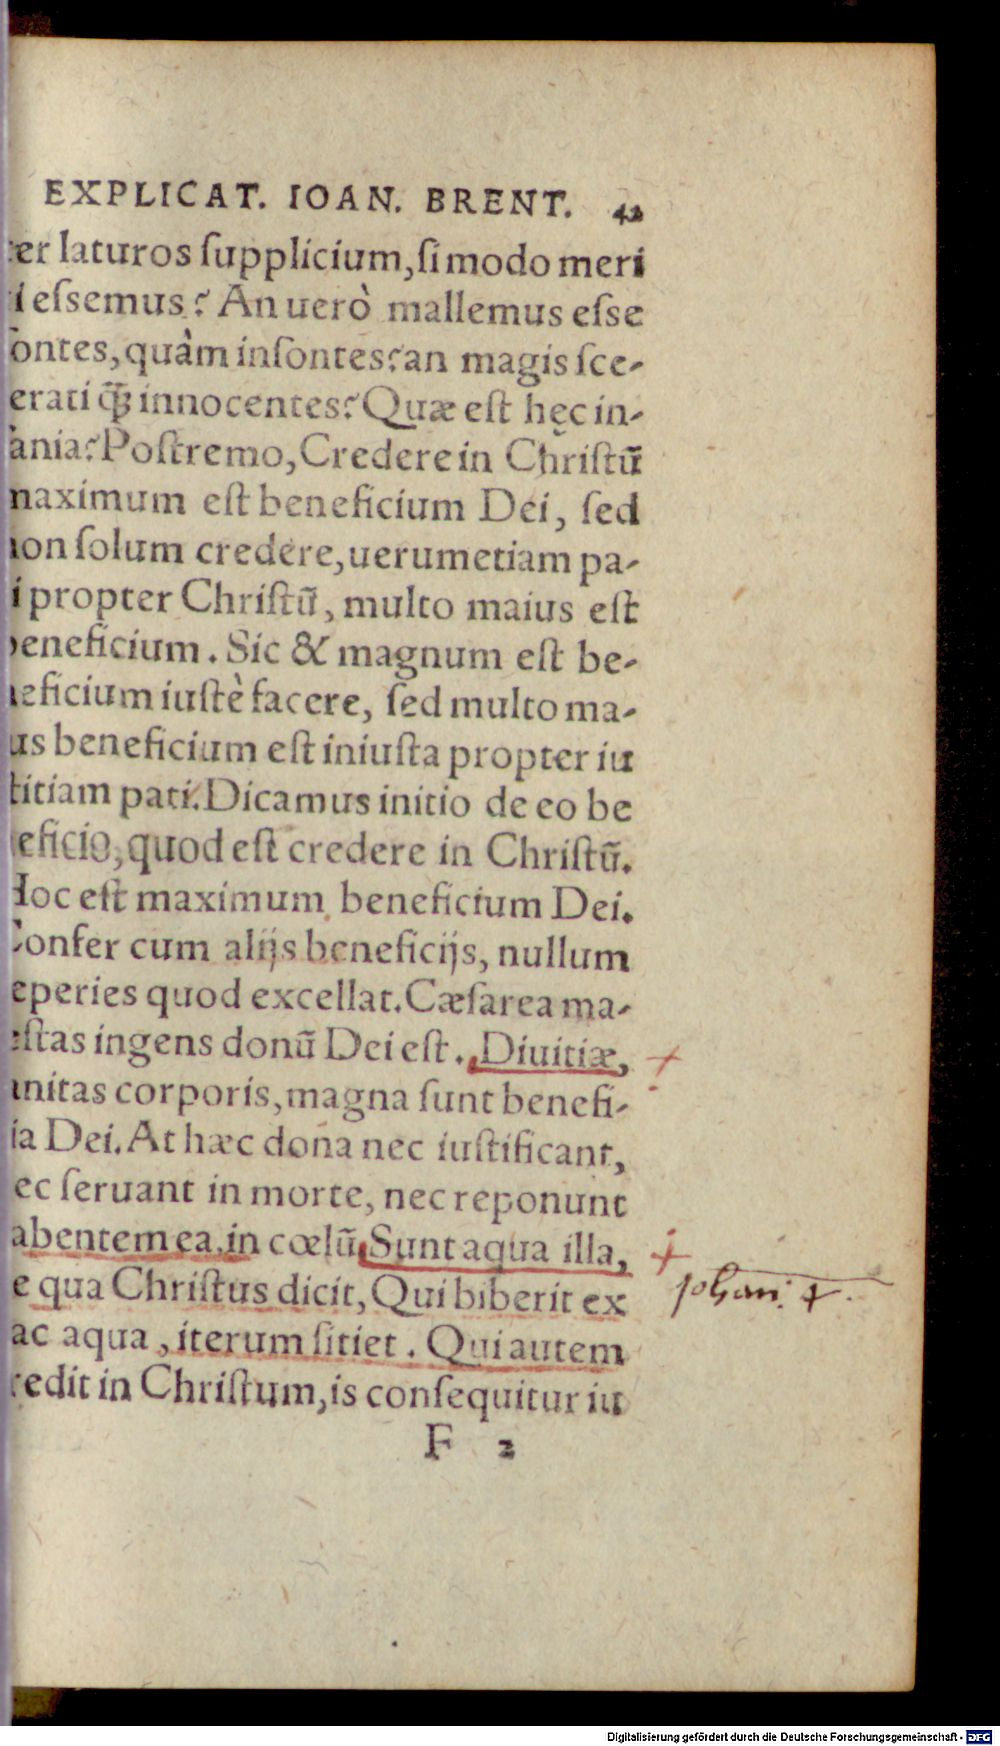 EXPLICAT. IOAN. BRENT. 42
er laturos ſupplicium, ſi modo meri
i eſsemus? An uerò mallemus eſse
ontes, quàm inſontes? an magis ſce-
erati q̃ꝫ innocentes? Quæ eſt hęc in-
ania? Poſtremo, Credere in Chriſtũ
maximum eſt beneficium Dei, ſed
non ſolum credere, uerumetiam pa-
i propter Chriſtũ, multo maius eſt
beneficium. Sic & magnum eſt be-
neficium iuſtè facere, ſed multo ma-
us beneficium eſt iniuſta propter iu
titiam pati. Dicamus initio de eo be
eficio, quod eſt credere in Chriſtũ.
Hoc eſt maximum beneficium Dei.
Confer cum alijs beneficijs, nullum
eperies quod excellat. Cæſarea ma-
eſtas ingens donũ Dei eſt. Diuitiæ, +
anitas corporis, magna ſunt benefi-
ia Dei. At hæc dona nec iuſtificant,
ec ſeruant in morte, nec reponunt
abentem ea, in cœlũ. Sunt aqua illa, +
e qua Chriſtus dicit, Qui biberit ex
Johan. 4.
ac aqua, iterum ſitiet. Qui autem
redit in Chriſtum, is conſequitur iu
F 2
Digitalisierung gefördert durch die Deutsche Forschungsgemeinschaft - DFG